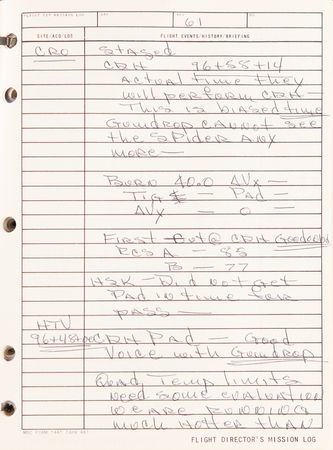 61
SITE/ACQ/LOS FLIGHT EVENTS/HISTORY/BRIEFING
CRO Staged
CDH 96+58+14
Actual time they
will perform CDH —
This is biased time
Gumdrop cannot see
the Spider any
more —
Burn 40.0 ΔVx —
Tig = Pad —
ΔVx = 0 —
First Out @ CDH Good
RCS A - 85
B - 77
HSK - Did not get
Pad in time for
pass —
HTV
96+48+00 CDH Pad — Good
Voice with Gumdrop
Quad Temp limits
need some evaluation
we are running
much hotter than
FLIGHT DIRECTOR'S MISSION LOG